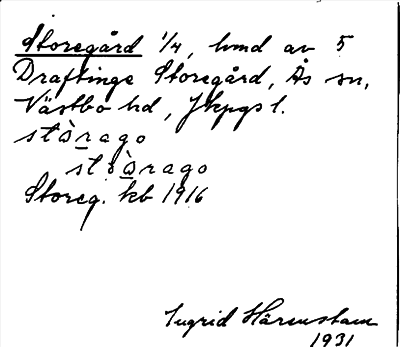 Storegård 1/4, hmd av 5
Draftinge Storegård, Ås sn,
Västbo hd, Jkpgs l.
stòrago
stoàrago
Storeg. kb 1916
Ingrid Härenstam
1931